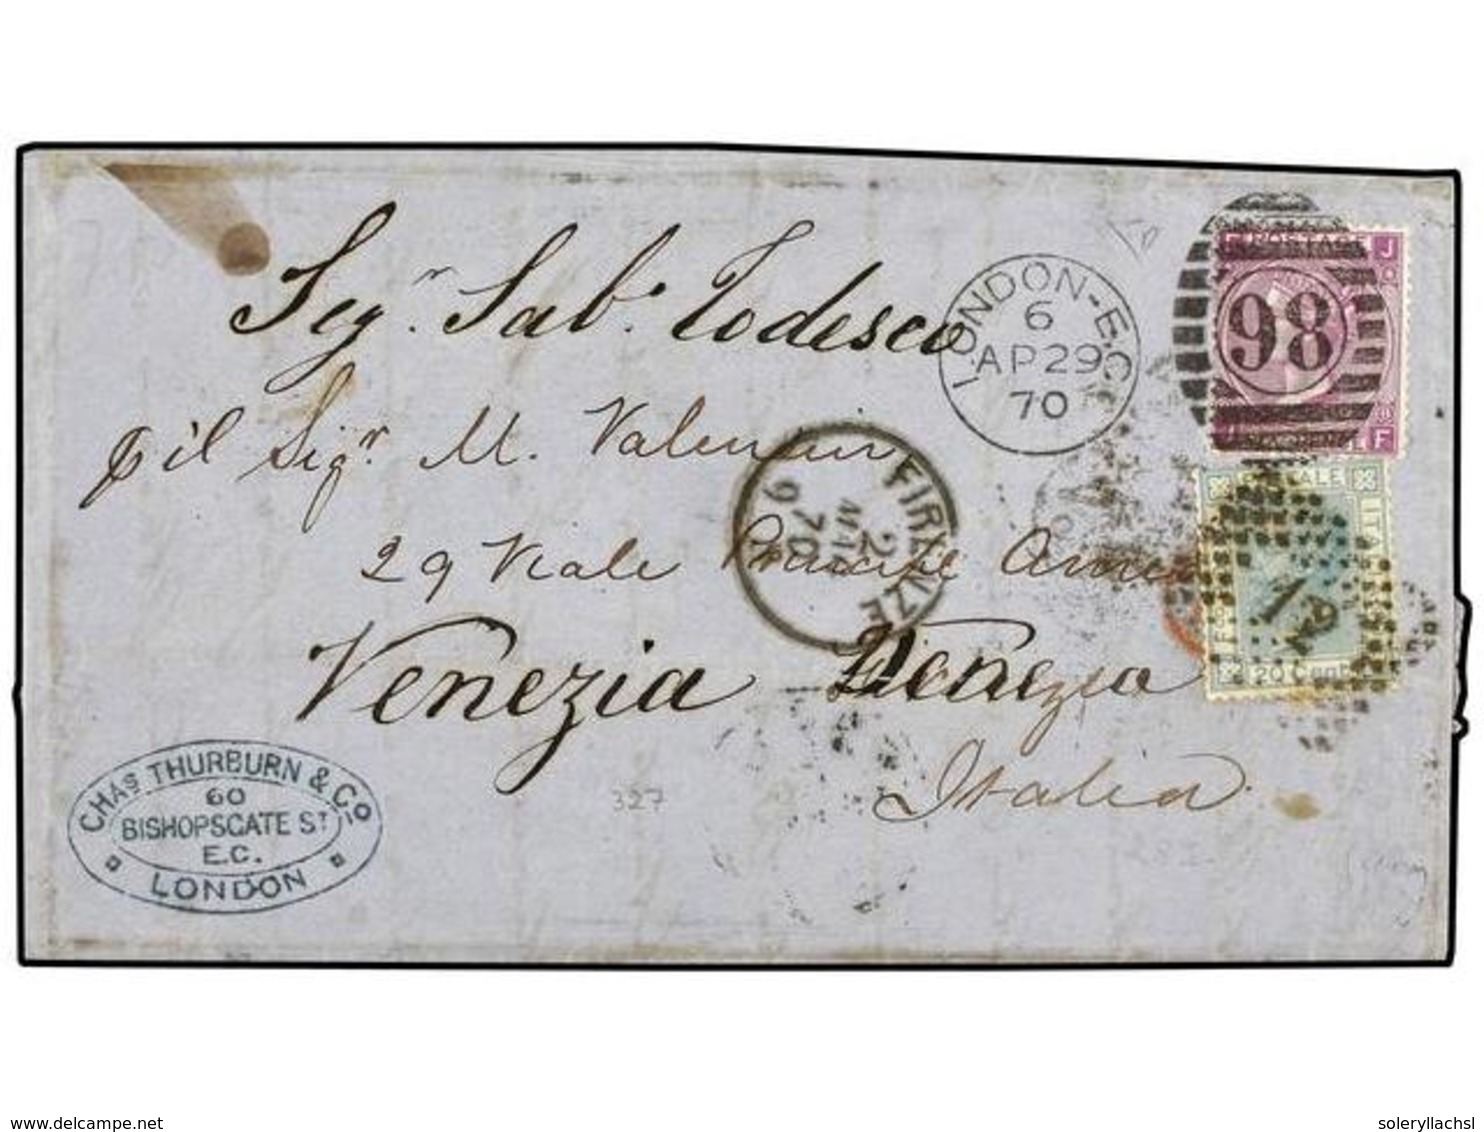 Sigr. Sabo. Todesco
p il Sigr. M. Valentin
29 Viale Principe Ame
Venezia Venezia
Italia
LONDON-E.C
6
AP 29
70
98
POSTAGE
J
F
FIRENZE
2
MAG
70
9 M
ITALIANE
20 Cent
12
327
CHAS THURBURN & CO
60
BISHOPSGATE ST
E.C.
LONDON
www.delcampe.net
soleryllachsl